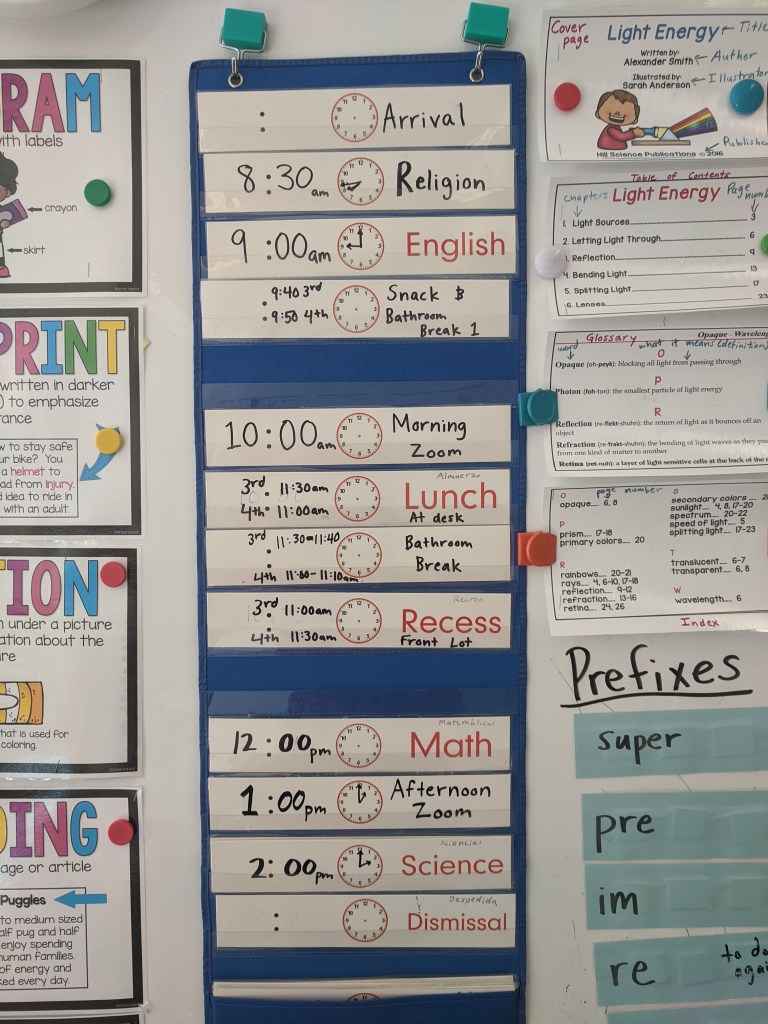 RAM
with labels
crayon
skirt
PRINT
written in darker
) to emphasize
how to stay safe
your bike? You
a helmet to
injury.
idea to ride in
with an adult.
ION
under a picture
about the
that is used for
coloring.
ING
age or article
Puggles
to medium sized
half pug and half
enjoy spending
human families.
of energy and
every day.
: Arrival
8:30am Religion
9:00am English
9:40 3rd
9:50 4th
Snack &
Bathroom
Break 1
10:00am Morning
Zoom
Almuerzo
3rd 11:30am
4th 11:00am
Lunch
At desk
3rd 11:30-11:40
4th 11:00-11:10am
Bathroom
Break
Recreo
3rd 11:00am
4th 11:30am
Recess
Front Lot
Matemáticas
12:00pm Math
1:00pm Afternoon
Zoom
Sciencias
2:00pm Science
Despedida
: Dismissal
Cover
page
Light Energy Title
Written by:
Alexander Smith Author
Illustrated by:
Sarah Anderson Illustrator
Publisher
Hill Science Publications © 2016
Table of Contents
chapters Light Energy Page
1. Light Sources 3
2. Letting Light Through 6
Reflection 9
4. Bending Light 13
5. Splitting Light 17
6. Lenses 23
Glossary Opaque - Wavelength
word what it means (definition)
O
Opaque (oh-peyk): blocking all light from passing through
P
Photon (foh-ton): the smallest particle of light energy
R
Reflection (re-flekt-shuhn): the return of light as it bounces off an
object
Refraction (re-frakt-shuhn): the bending of light waves as they pass
from one kind of matter to another
Retina (ret-nuh): a layer of light sensitive cells at the back of the
page number
O
opaque.... 6, 8
P
prism.... 17-18
primary colors.... 20
R
rainbows.... 20-21
rays.... 4, 6-10, 17-18
reflection.... 9-12
refraction.... 13-16
retina.... 24, 26
S
secondary colors ....
sunlight.... 4, 8, 17-20
spectrum.... 20-22
speed of light.... 5
splitting light.... 17-23
T
translucent.... 6-7
transparent.... 6, 8
W
wavelength.... 6
Index
Prefixes
super
pre
im
re
to do
again